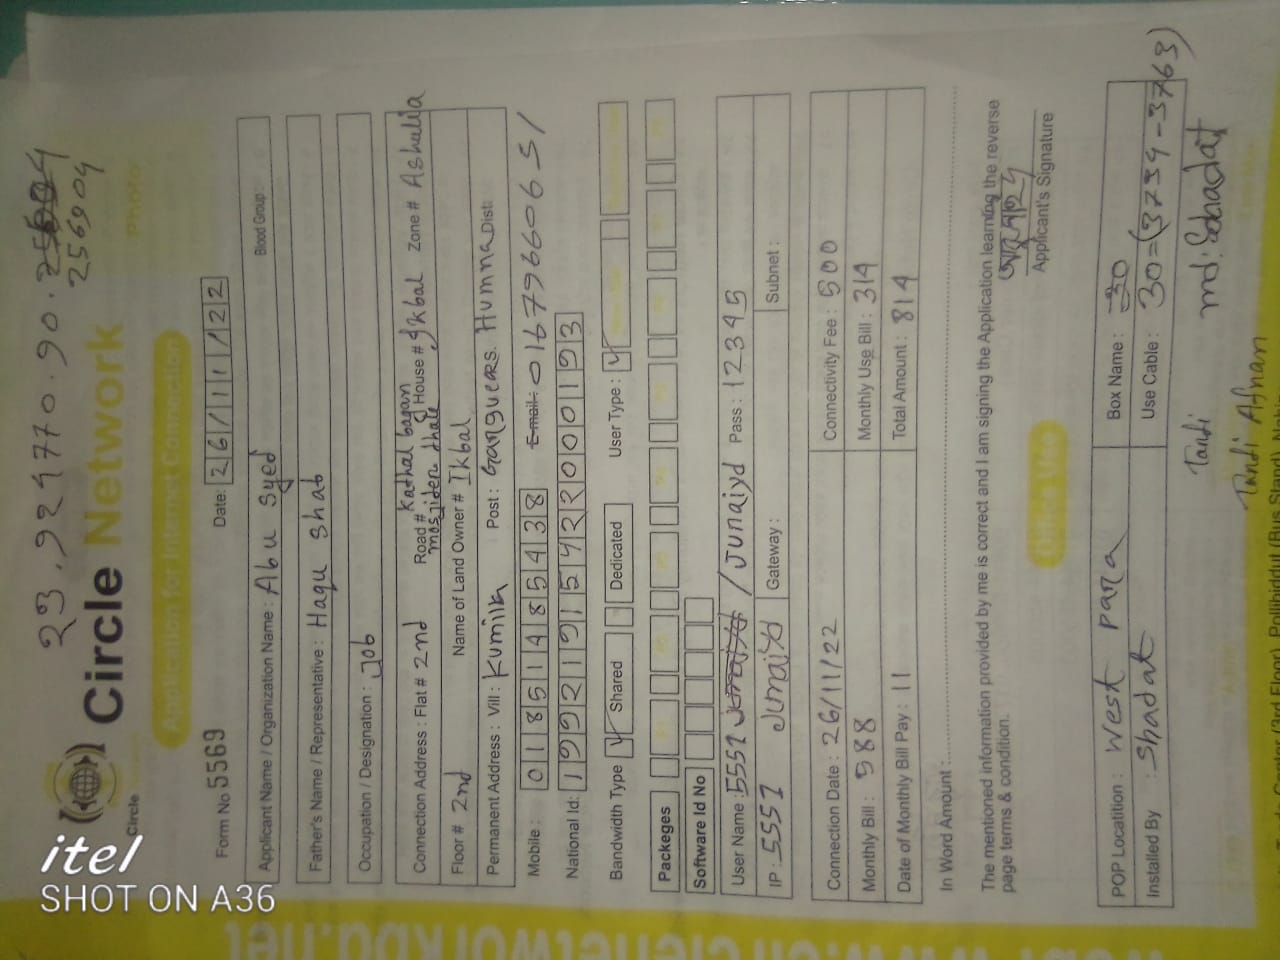 23.924770.90.
256904
Circle Network
Circle
Application for Internet Connection
Photo
Form No 5569
Date: 26/11/22
Applicant Name / Organization Name : Abu Syed
Blood Group:
Father's Name / Representative : Haqu Shab
Occupation / Designation : Job
Connection Address : Flat # 2nd Road # Kathal bagan mosjider House # Ikbal Zone # Ashulia
Floor # 2nd Name of Land Owner # Ikbal
Permanent Address : Vill : Kumilla Post : Humna Dist:
Mobile : 01851485438 Email: 01679660651
National Id: 19921915422000193
Bandwidth Type Shared Dedicated User Type :
Packeges
Software Id No
User Name : 5551 / Junaiyd Pass : 12345
IP : 5551 Gateway : Subnet :
Connection Date : 26/11/22 Connectivity Fee : 500
Monthly Bill : 588 Monthly Use Bill : 314
Date of Monthly Bill Pay : 11 Total Amount : 814
In Word Amount :
The mentioned information provided by me is correct and I am signing the Application learning the reverse
page terms & condition.
Applicant's Signature
Office Use
POP Locatition : West para Box Name : 30
Installed By : Shadat Use Cable : 30=(3734-3763)
Tandi md: Sahadat
Tandi Afnan
itel
SHOT ON A36